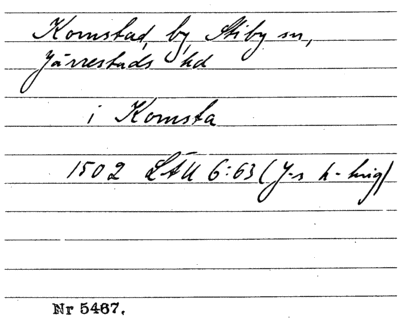 Komstad, by, Stiby sn,
Järrestads hd
i Komsta
1502 LÄU 6:63 (J-s h-ting)
Nr 5467.